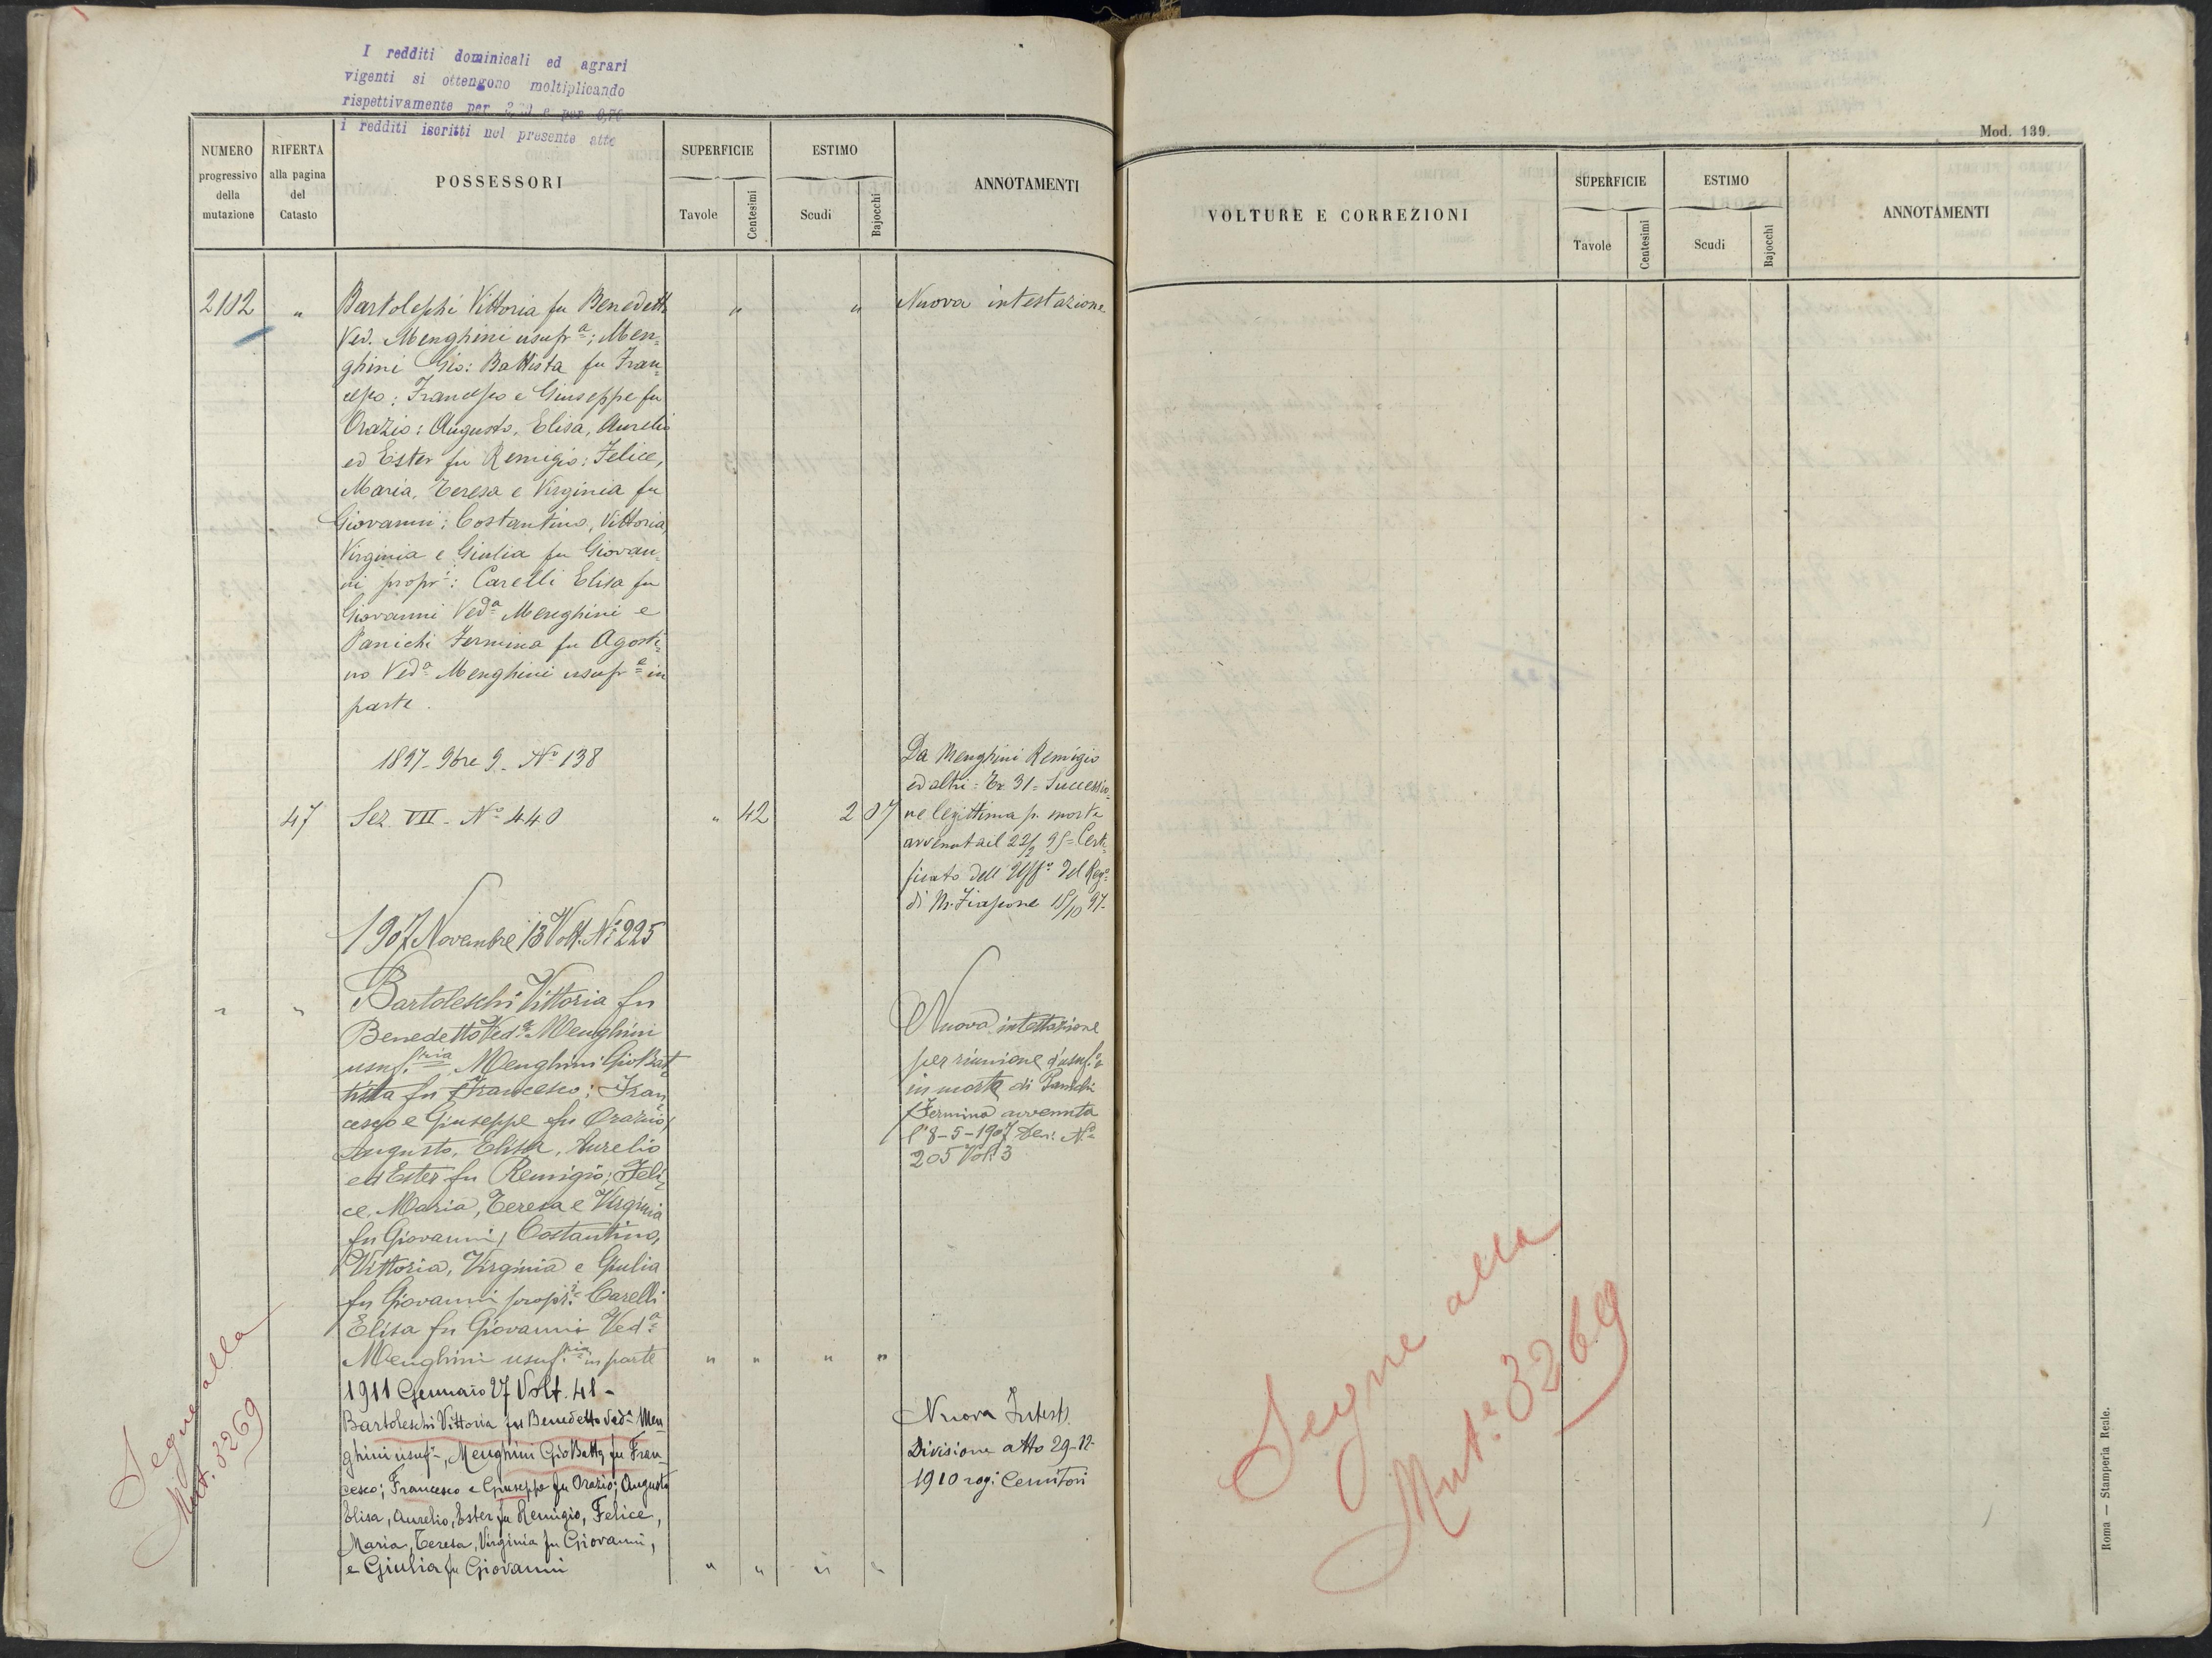 I redditi dominicali ed agrari
vigenti si ottengono moltiplicando
rispettivamente per e per 0,70
i redditi iscritti nel presente atto
NUMERO progressivo della mutazione
RIFERTA alla pagina del Catasto
POSSESSORI
SUPERFICIE
Tavole
Centesimi
ESTIMO
Scudi
Bajocchi
ANNOTAMENTI
2102 " " " Nuova intestazione
Bartoleschi Vittoria fu Benedetto
Ved. Menghini usufr.a; Men=
ghini Gio: Battista fu Fran=
cesco; Francesco e Giuseppe fu
Orazio: Augusto, Elisa, Aurelio
ed Ester fu Remigio: Felice,
Maria, Teresa e Virginia fu
Giovanni; Costantino, Vittoria,
Virginia e Giulia fu Giovan=
ni propri: Carelli Elisa fu
Giovanni Ved.a Menghini e
Panichi Fermina fu Agosti=
no Ved.a Menghini usufr.e in
parte.
1897 - 9bre 9 - No 138
47 Sez. VII - No 440 " 42 2 07
Da Menghini Remigio
ed altri = Ex 31 = Successio=
ne legittima p. morte
avvenuta il 22/2 95 = Certi=
ficato dell' Uff.o del Reg.o
di M. Fiascone 15/10 97-
1907 Novembre 13 Volt. No 225
" "
Bartoleschi Vittoria fu
Benedetto Ved.a Menghini
usuf.ria, Menghini Gio Bat=
tista fu Francesco; Fran=
cesco e Giuseppe fu Orazio;
Augusto, Elisa, Aurelio
ed Ester fu Remigio; Feli=
ce, Maria, Teresa e Virginia
fu Giovanni; Costantino,
Vittoria, Virginia e Giulia
fu Giovanni propri: Carelli
Elisa fu Giovanni Ved.a
Menghini usuf.ria in parte " " " "
Nuova intestazione
per riunione d'usuf.o
in morte di Panichi
Fermina avvenuta
l'8-5-1907 Den: No
205 Vol: 3
1911 Gennaio 27 Volt. 41 -
Bartoleschi Vittoria fu Benedetto Ved.a Men
ghini usuf.a, Menghini Gio Batta fu Fran=
cesco; Francesco e Giuseppe fu Orazio; Augusto
Elisa, Aurelio, Ester fu Remigio, Felice,
Maria, Teresa, Virginia fu Giovanni,
e Giulia fu Giovanni " " " "
Nuova Intest.
Divisione atto 29-12-
1910 rogi Cernitori
Segue alla
Mut. 3269
Mod. 139.
VOLTURE E CORREZIONI
SUPERFICIE
Tavole
Centesimi
ESTIMO
Scudi
Bajocchi
ANNOTAMENTI
Segue alla
Mut.e 3269
Roma — Stamperia Reale.